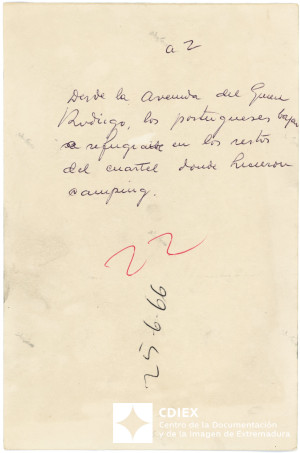 a 2
Desde la Avenida del Gran
Rodrigo, los portugueses bajan
a refugiarse en los restos
del cuartel donde hicieron
camping.
22
25-6-66
CDIEX
Centro de la Documentación
y de la Imagen de Extremadura